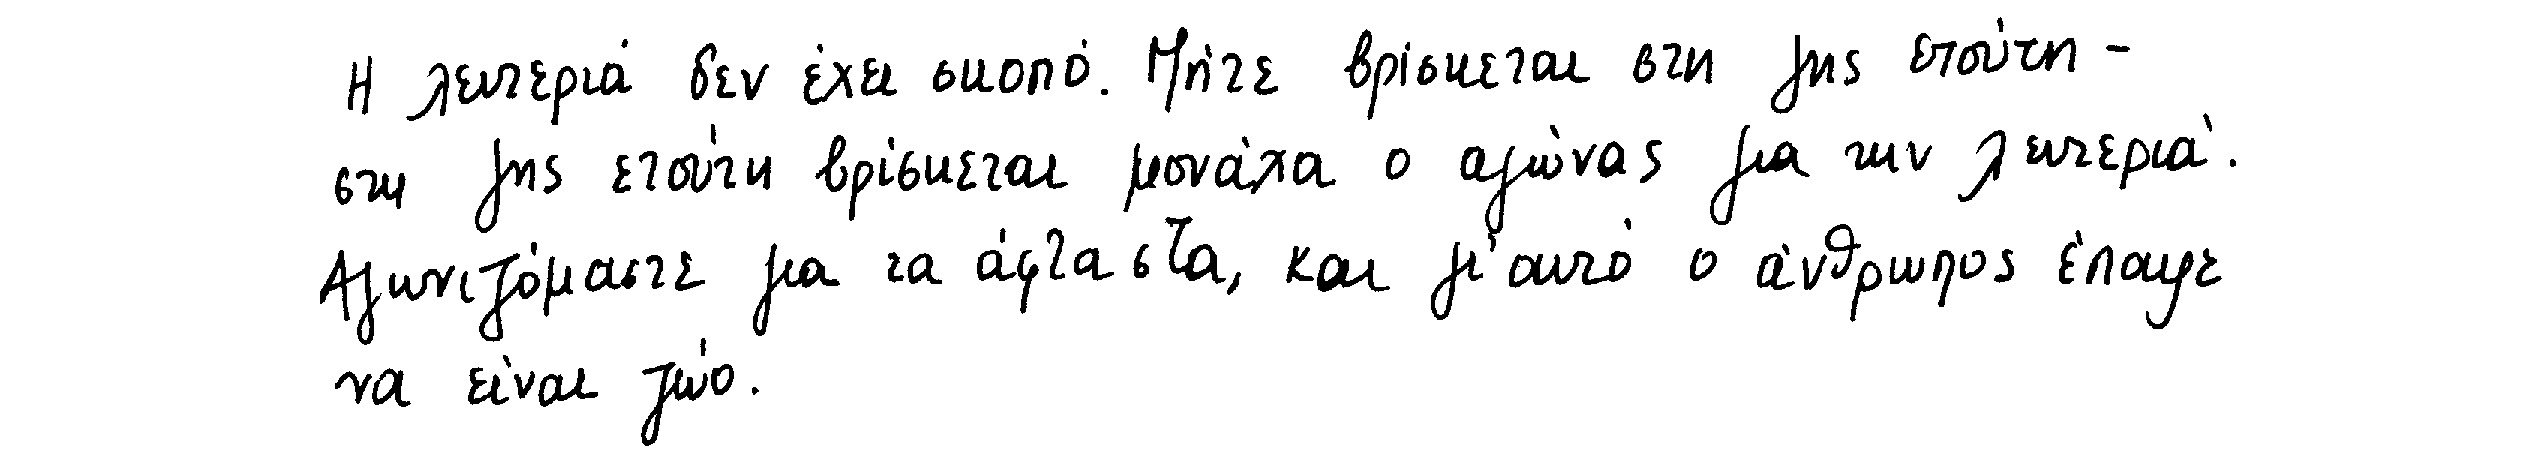 Η λευτεριά δεν έχει σκοπό. Μήτε βρίσκεται στη γης ετούτη -
στη γης ετούτη βρίσκεται μονάχα ο αγώνας για την λευτεριά.
Αγωνιζόμαστε για τα άφταστα, και γι'αυτό ο άνθρωπος έπαψε
να είναι ζώο.